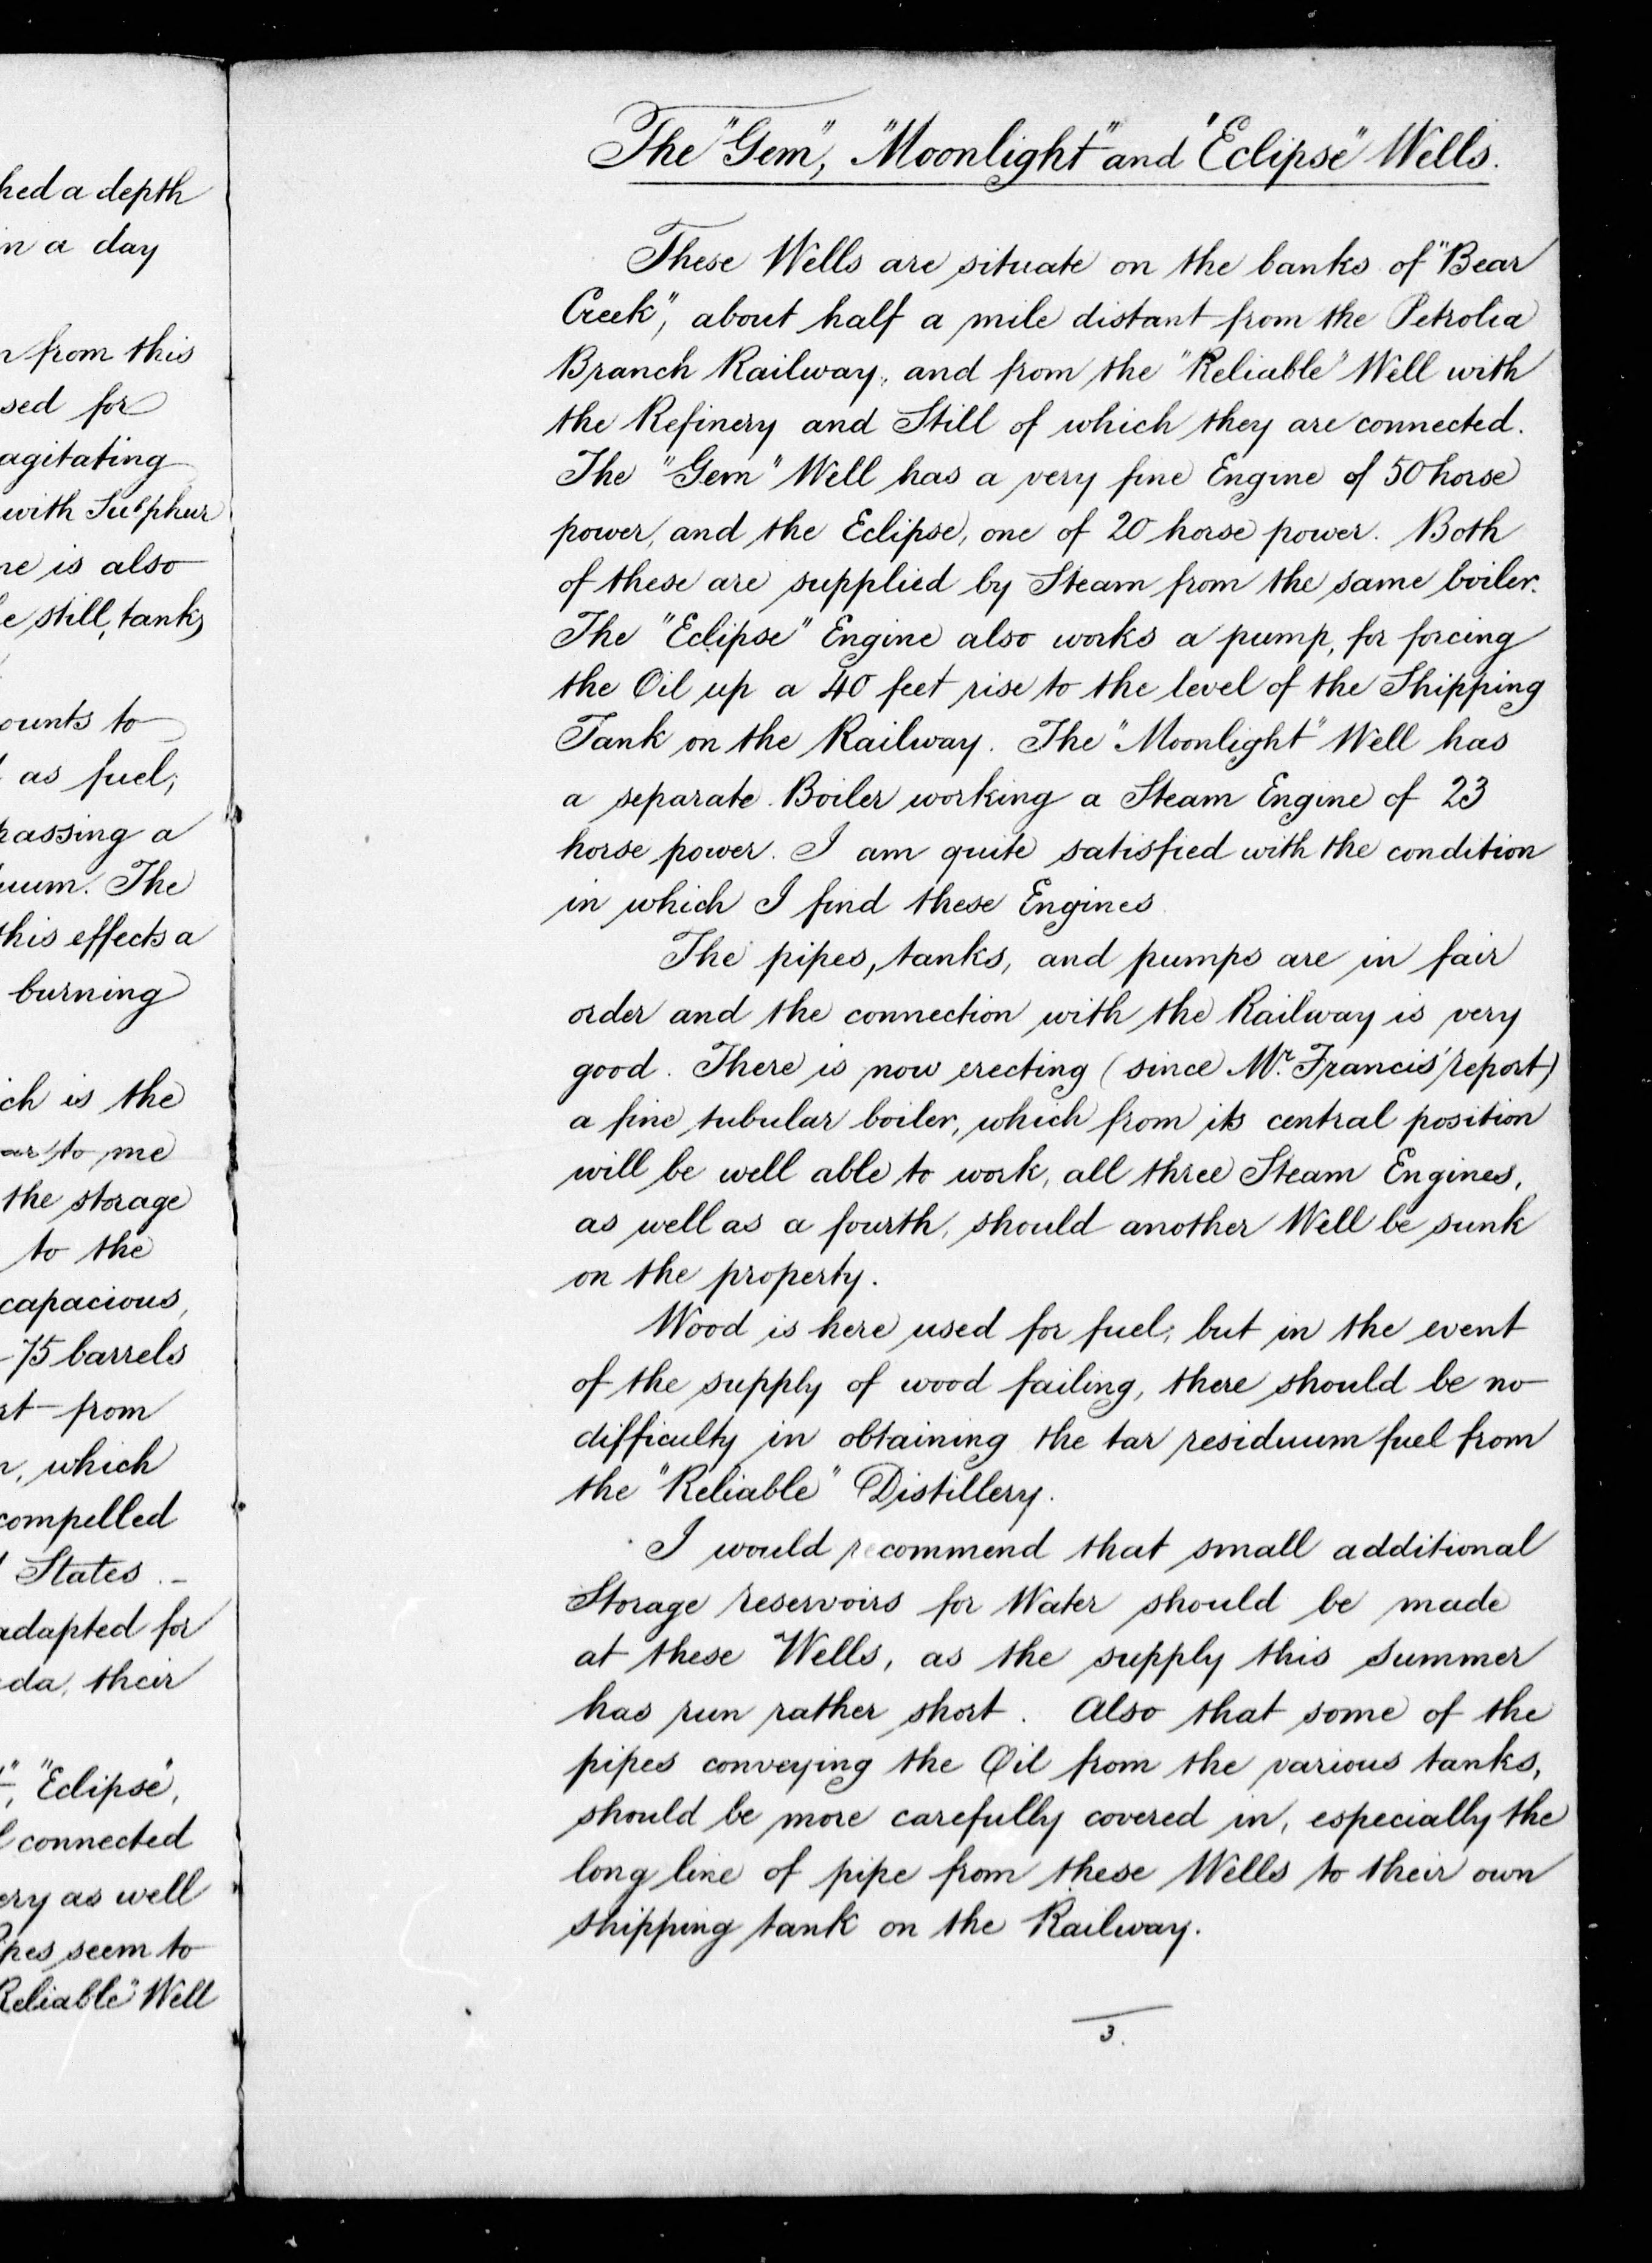 hed a depth
in a day
from this
sed for
agitating
with Sulphur
ne is also
e still, tanks
ounts to
as fuel;
passing a
uum. The
this effects a
burning
ch is the
to me
the storage
to the
capacious,
75 barrels
from
which
compelled
States. -
adapted for
da, their
"Eclipse",
connected
ery as well
pes seem to
Reliable" Well
The "Gem", "Moonlight" and "Eclipse" Wells.
These Wells are situate on the banks of "Bear
Creek", about half a mile distant from the Petrolia
Branch Railway, and from the "Reliable" Well with
the Refinery and Still of which they are connected.
The "Gem" Well has a very fine Engine of 50 horse
power, and the Eclipse, one of 20 horse power. Both
of these are supplied by Steam from the same boiler.
The "Eclipse" Engine also works a pump, for forcing
the Oil up a 40 feet rise to the level of the Shipping
Tank on the Railway. The "Moonlight" Well has
a separate Boiler working a Steam Engine of 23
horse power. I am quite satisfied with the condition
in which I find these Engines
The pipes, tanks, and pumps are in fair
order and the connection with the Railway is very
good. There is now erecting (since Mr. Francis' report)
a fine tubular boiler, which from its central position
will be well able to work, all three Steam Engines,
as well as a fourth, should another Well be sunk
on the property.
Wood is here used for fuel; but in the event
of the supply of wood failing, there should be no
difficulty in obtaining the tar residuum fuel from
the "Reliable" Distillery.
I would recommend that small additional
Storage reservoirs for Water should be made
at these Wells, as the supply this Summer
has run rather short. Also that some of the
pipes conveying the Oil from the various tanks,
should be more carefully covered in, especially the
long line of pipe from these Wells to their own
shipping tank on the Railway.
3.